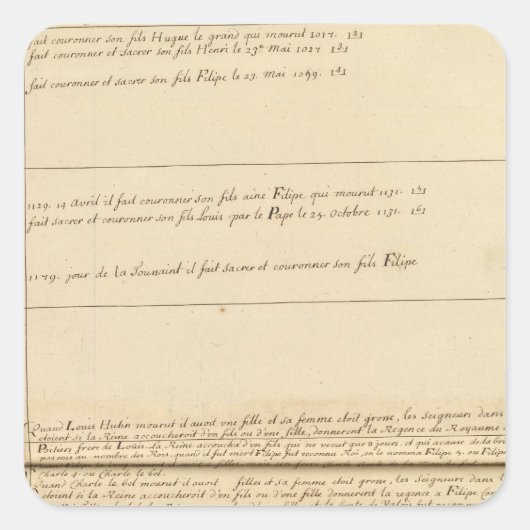 fait couronner son fils Hugue le grand qui mourut 1017. [2]
fait couronner et sacrer son fils Henri le 23e Mai 1027 [3]
fait couronner et sacrer son fils Filipe le 23. Mai 1059. [4]
1129. 14 Avril il fait couronner son fils ainé Filipe qui mourut 1131. [5]
fait sacrer et couronner son fils Louis par le Pape le 25. Octobre 1131. [6]
1179. jour de la Toussaint il fait sacrer et couronner son fils Filipe
Quand Louis Hutin mourut il avoit une fille et sa femme etoit grosse, les Seigneurs dans
etoient si la Reine accoucheroit d'un fils ou d'une fille, donnerent la Regence du Royaume
Poitiers frere de Louis. La Reine accoucha d'un fils qui ne vecut que 8 jours, et qui a cause de la
pas mis au nombre des Rois, quand il fut mort Filipe fut reconnu Roi, on le nomma Filipe 5. ou Filipe
Charle 4. ou Charle le bel.
Quand Charle le bel mourut il avoit filles et sa femme etoit grosse, les Seigneurs dans
etoient si la Reine accoucheroit d'un fils ou d'une fille donnerent la regence a Filipe